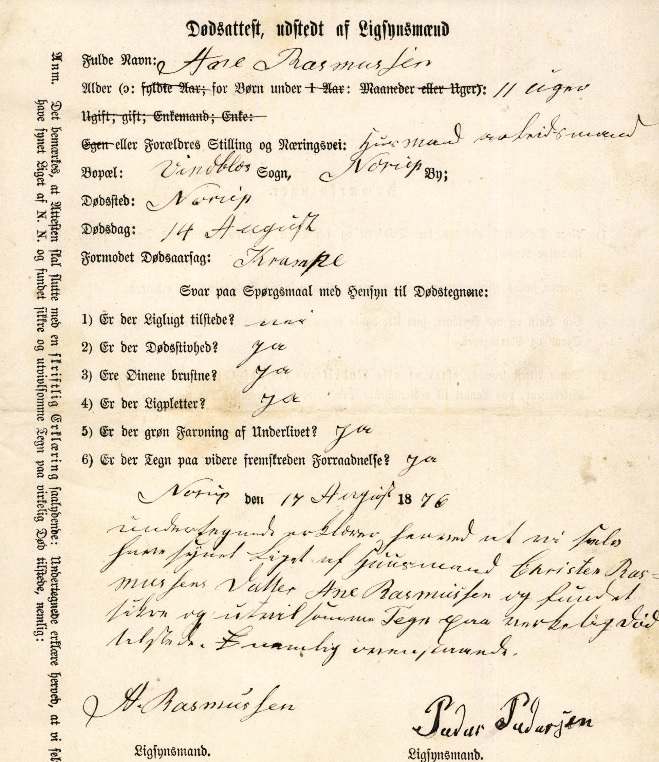 Dødsattest, udstedt af Ligsynsmænd
Fulde Navn: Ane Rasmussen
Alder (ɔ: fyldte Aar; for Børn under 1 Aar: Maaneder eller Uger): 11 Uger
Ugift; gift; Enkemand; Enke:
Egen eller Forældres Stilling og Næringsvei: Husmand arbeidsmand
Bopæl: Vindblæs Sogn, Norup By;
Dødssted: Norup
Dødsdag: 14 August
Formodet Dødsaarsag: Krampe
Svar paa Spørgsmaal med Hensyn til Dødstegnene:
1) Er der Liglugt tilstede? nei
2) Er der Dødsstivhed? ja
3) Ere Øinene brustne? ja
4) Er der Ligpletter? ja
5) Er der grøn Farvning af Underlivet? ja
6) Er der Tegn paa videre fremskreden Forraadnelse? ja
Norup den 17 August 1876
undertegnede erklærer herved at vi selv
have synet Liget af Huusmand Christen Ras=
mussens Datter Ane Rasmussen og fundet
sikre og utvivlsomme Tegn paa verkelig Død
tilstede. nemlig ovenstaaende.
A. Rasmussen
Peder Pedersen
Ligsynsmand.
Ligsynsmand.
Anm. Det bemærkes, at Attesten skal slutte med en skriftlig Erklæring saalydende: Undertegnede erklære herved, at vi sel
have synet Liget af N. N. og fundet sikre og utvivlsomme Tegn paa virkelig Død tilstede, nemlig: